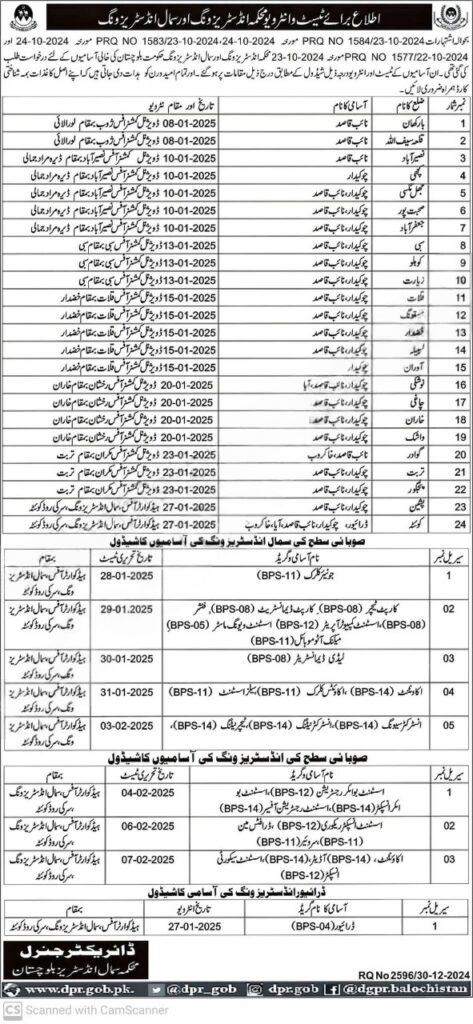 اطلاع برائے ٹیسٹ و انٹرویو محکمہ انڈسٹریز ونگ اور سمال انڈسٹریز ونگ
بحوالہ اشتہارات PRQ NO 1584/23-10-2024 مورخہ 24-10-2024، PRQ NO 1583/24-10-2024 مورخہ 24-10-2024 اور
PRQ NO 1577/22-10-2024 مورخہ 23-10-2024 محکمہ انڈسٹریز ونگ اور سمال انڈسٹریز ونگ حکومت بلوچستان کی خالی آسامیوں کے لئے درخواست طلب
کی گئی تھی۔ ان آسامیوں کے ٹیسٹ اور انٹرویو درجہ ذیل شیڈول کے مطابق درج ذیل مقامات پر ہوں گے۔ اور تمام امیدواروں کو ہدایت دی جاتی ہیں کہ اپنے اصل کاغذات، شناختی
کارڈ ہمراہ ضروری لائیں۔
نمبر شمار ضلع کا نام آسامی کا نام تاریخ اور مقام انٹرویو
1 بارکھان نائب قاصد 08-01-2025 ڈویژنل کمشنر آفس ژوب بمقام لورالائی
2 قلعہ سیف اللہ نائب قاصد 08-01-2025 ڈویژنل کمشنر آفس ژوب بمقام لورالائی
3 نصیر آباد نائب قاصد 10-01-2025 ڈویژنل کمشنر آفس نصیر آباد بمقام ڈیرہ مراد جمالی
4 کچھی چوکیدار 10-01-2025 ڈویژنل کمشنر آفس نصیر آباد بمقام ڈیرہ مراد جمالی
5 جھل مگسی چوکیدار، نائب قاصد 10-01-2025 ڈویژنل کمشنر آفس نصیر آباد بمقام ڈیرہ مراد جمالی
6 صحبت پور چوکیدار، نائب قاصد 10-01-2025 ڈویژنل کمشنر آفس نصیر آباد بمقام ڈیرہ مراد جمالی
7 جعفر آباد چوکیدار، نائب قاصد 10-01-2025 ڈویژنل کمشنر آفس نصیر آباد بمقام ڈیرہ مراد جمالی
8 سبی چوکیدار، نائب قاصد 13-01-2025 ڈویژنل کمشنر آفس سبی بمقام سبی
9 کوہلو چوکیدار، نائب قاصد 13-01-2025 ڈویژنل کمشنر آفس سبی بمقام سبی
10 زیارت چوکیدار، نائب قاصد 13-01-2025 ڈویژنل کمشنر آفس سبی بمقام سبی
11 قلات چوکیدار، نائب قاصد 15-01-2025 ڈویژنل کمشنر آفس قلات بمقام خضدار
12 مستونگ چوکیدار، نائب قاصد 15-01-2025 ڈویژنل کمشنر آفس قلات بمقام خضدار
13 خضدار چوکیدار، نائب قاصد 15-01-2025 ڈویژنل کمشنر آفس قلات بمقام خضدار
14 لسبیلہ چوکیدار، نائب قاصد 15-01-2025 ڈویژنل کمشنر آفس قلات بمقام خضدار
15 آواران چوکیدار 15-01-2025 ڈویژنل کمشنر آفس قلات بمقام خضدار
16 نوشکی چوکیدار، نائب قاصد، آیا 20-01-2025 ڈویژنل کمشنر آفس رخشان بمقام خاران
17 چاغی چوکیدار، نائب قاصد 20-01-2025 ڈویژنل کمشنر آفس رخشان بمقام خاران
18 خاران چوکیدار، نائب قاصد 20-01-2025 ڈویژنل کمشنر آفس رخشان بمقام خاران
19 واشک چوکیدار، نائب قاصد 20-01-2025 ڈویژنل کمشنر آفس رخشان بمقام خاران
20 گوادر نائب قاصد، خاکروب 23-01-2025 ڈویژنل کمشنر آفس مکران بمقام تربت
21 تربت چوکیدار، نائب قاصد 23-01-2025 ڈویژنل کمشنر آفس مکران بمقام تربت
22 پنجگور چوکیدار، نائب قاصد 23-01-2025 ڈویژنل کمشنر آفس مکران بمقام تربت
23 پشین چوکیدار، نائب قاصد 27-01-2025 ہیڈ کوارٹر آفس، سمال انڈسٹریز ونگ، سرکی روڈ کوئٹہ
24 کوئٹہ ڈرائیور، نائب قاصد، آیا، خاکروب 27-01-2025 ہیڈ کوارٹر آفس، سمال انڈسٹریز ونگ، سرکی روڈ کوئٹہ
صوبائی سطح کی سمال انڈسٹریز ونگ کی آسامیوں کا شیڈول
سیریل نمبر نام آسامی و گریڈ تاریخ تحریری ٹیسٹ بمقام
1 جونیئر کلرک (BPS-11) 28-01-2025 ہیڈ کوارٹر آفس، سمال انڈسٹریز
ونگ، سرکی روڈ کوئٹہ
02 کارپٹ ٹیچر (BPS-08)، کارپٹ ڈیمانسٹریٹر (BPS-08)، فٹشر 29-01.2025 ہیڈ کوارٹر آفس، سمال انڈسٹریز
(BPS-08)، اسسٹنٹ کمپیوٹر آپریٹر (BPS-12) اسسٹنٹ ویونگ ماسٹر (BPS-05) ونگ، سرکی روڈ کوئٹہ
مکینک آٹو موبائل (BPS-11)
03 لیڈی ڈیمانسٹریٹر (BPS-08) 30-01-2025 ہیڈ کوارٹر آفس، سمال انڈسٹریز
ونگ، سرکی روڈ کوئٹہ
04 اکاؤنٹنٹ (BPS-14)، اکاؤنٹس کلرک (BPS-11) سیلز اسسٹنٹ (BPS-11) 31-01-2025 ہیڈ کوارٹر آفس، سمال انڈسٹریز
ونگ، سرکی روڈ کوئٹہ
05 انسٹرکٹر سیونگ (BPS-14)، انسٹرکٹر نٹنگ (BPS-14)، ٹیچر نٹنگ (BPS-14)، 3-02-2025 ہیڈ کوارٹر آفس، سمال انڈسٹریز
ونگ، سرکی روڈ کوئٹہ
صوبائی سطح کی انڈسٹریز ونگ کی آسامیوں کا شیڈول
سیریل نمبر نام آسامی و گریڈ تاریخ تحریری ٹیسٹ بمقام
1 اسسٹنٹ بوائلر رجسٹریشن (BPS-12)، اسسٹنٹ بو 04-02-2025 ہیڈ کوارٹر آفس، سمال انڈسٹریز ونگ
ائلر انسپکٹر (BPS-14)، اسسٹنٹ رجسٹریشن آفیسر (BPS-14) ،سرکی روڈ کوئٹہ
02 اسسٹنٹ انسپکٹر ریکوری (BPS-12)، ڈرافٹس مین 06-02-2025 ہیڈ کوارٹر آفس، سمال انڈسٹریز ونگ
(BPS-11)، سروئیر (BPS-11) ،سرکی روڈ کوئٹہ
03 اکاؤنٹنٹ، (BPS-14)، آڈیٹر، (BPS-14)، اسسٹنٹ سیکورٹی 07-02-2025 ہیڈ کوارٹر آفس، سمال انڈسٹریز ونگ
انسپکٹر (BPS-12) ،سرکی روڈ کوئٹہ
ڈرائیور انڈسٹریز ونگ کی آسامی کا شیڈول
سیریل نمبر آسامی کا نام گریڈ تاریخ انٹرویو بمقام
1 ڈرائیور (BPS-04) 27-01-2025 ہیڈ کوارٹر آفس، سمال انڈسٹریز ونگ، سرکی روڈ کوئٹہ
ڈائریکٹر جنرل
محکمہ سمال انڈسٹریز بلوچستان
RQ No 2596/30-12-2024
www.dpr.gob.pk. @dpr_gob dpr.gob @dgpr.balochistan
CS Scanned with CamScanner